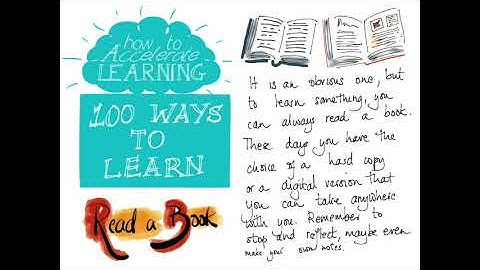 how to
Accelerate
LEARNING
100 WAYS
TO
LEARN
Read a Book
It is an obvious one, but
to learn something, you
can always read a book.
These days you have the
choice of a hard copy
or a digital version that
you can take anywhere
with you. Remember to
stop and reflect, maybe even
make your own notes.